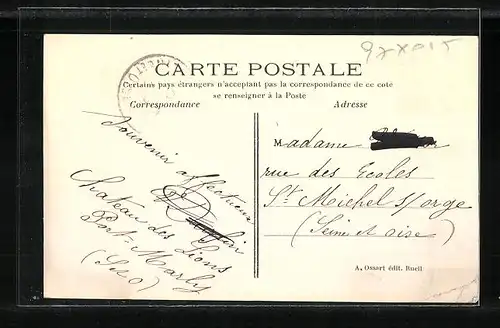 97X015
CARTE POSTALE
Certains pays étrangers n'acceptant pas la correspondance de ce coté
se renseigner à la Poste
Correspondance
Adresse
Souvenir affectueux
Chateau des Lions
Port-Marly
(S et O)
Madame
rue des Ecoles
St Michel s/orge
(Seine et oise)
A. Ossart édit. Rueil